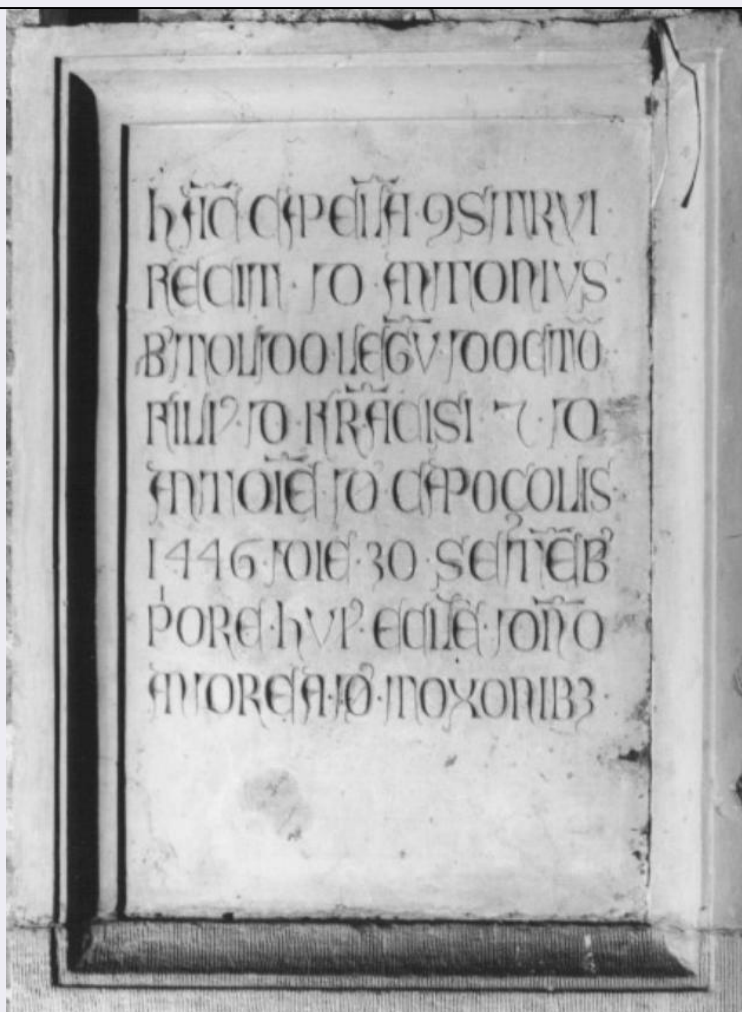 hAC̄ CAPEL̄A 9STRVI
FECIT · D ANTONIVS
B'TOLDO LEGV̄ DOCTŌ
FILI9 D FRĀCISI 7 D
ANTOIĒ D CAPOÇOLIS
1446 · DIE · 30 · SETĒB'
PORE · hVI9 ECLĒ · DÑO
ANDREA · D' · TOXONIB3